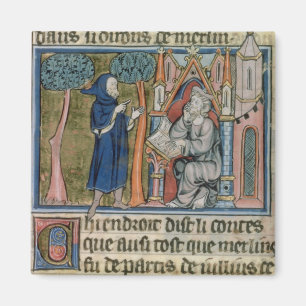 dans li oirons de merlin
Chi endroit dist li contes
que ausi tost que merlins
fu departis de iulius ce